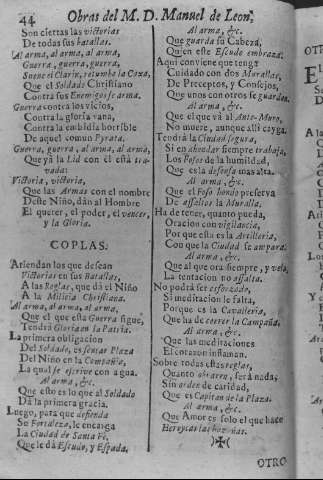 44 Obras del M. D. Manuel de Leon,
Son ciertas las victorias
De todas sus batallas.
Al arma, al arma, al arma,
Guerra, guerra, guerra,
Suene el Clarin, retumbe la Caxa,
Que el Soldado Christiano
Contra sus Enemigos se arma.
Guerra contra los vicios,
Contra la gloria vana,
Contra la embidia horrible
De aquel comun Pyrata.
Guerra, guerra, al arma, al arma,
Que yà la Lid con èl està tra-
vada:
Victoria, victoria,
Que las Armas con el nombre
Deste Niño, dàn al Hombre
El querer, el poder, el vencer,
y la Gloria.
COPLAS.
Atiendan los que desean
Victorias en sus Batallas,
A las Reglas, que dà el Niño
A la Milicia Christiana.
Al arma, al arma, al arma,
Que el que esta Guerra sigue,
Tendrà Gloria en la Patria.
La primera obligacion
Del Soldado, es sentar Plaza
Del Niño en la Compañia,
La qual se escrive con agua.
Al arma, &c.
Que esto es lo que al Soldado
Dà la primera gracia.
Luego, para que defienda
Se Fortaleza, le encarga
La Ciudad de Santa Fè,
Que le dà Escudo, y Espada.
Al arma, &c.
Que guarda su Cabeza,
Quien este Escudo embraza.
Aqui conviene que tenga
Cuidado con dos Murallas,
De Preceptos, y Consejos,
Que unos con otros se guardan.
Al arma, &c.
Que el que và al Ante-Muro,
No muere, aunque alli cayga.
Tendrà la Ciudad segura,
Si en ahondar siempre trabaja,
Los Fosos de la humildad,
Que es la defensa mas alta.
Al arma, &c.
Que el Foso hondo preserva
De assaltos la Muralla.
Ha de tener, quanto pueda,
Oracion con vigilancia,
Por que esta es la Artilleria,
Con que la Ciudad se ampara.
Al arma, &c.
Que al que ora siempre, y vela,
La tentacion no assalta.
No podrà ser esforzado,
Si meditacion le falta,
Porque es la Cavalleria,
Que ha de correr la Campaña.
Al arma, &c.
Que las meditaciones
El corazon inflaman.
Sobre todas estas reglas,
Quanto obrare, serà nada,
Sin orden de caridad,
Que es Capitan de la Plaza.
Al arma, &c.
Que Amor es solo el que hace
Heroycas las hazañas.
OTRO